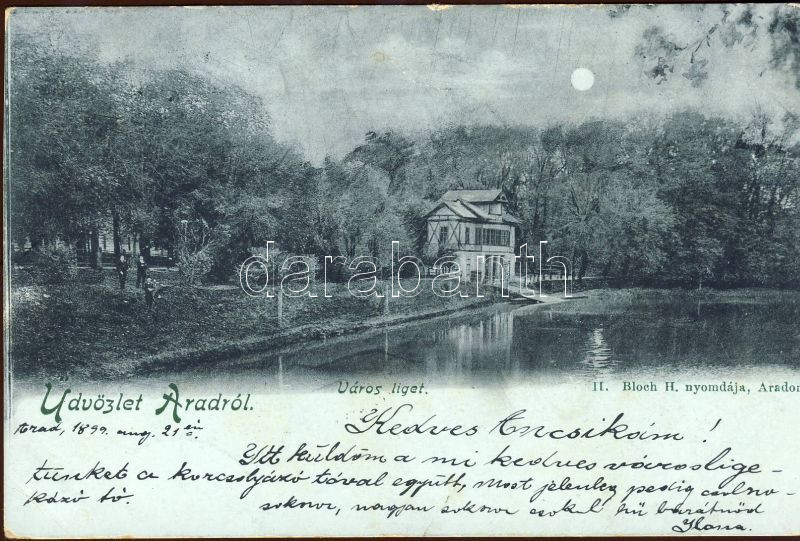 darabanth
Üdvözlet Aradról.
Város liget.
II. Bloch H. nyomdája, Aradon
Arad, 1899. aug. 21 én
Kedves Encsikém!
Itt küldöm a mi kedves városlige-
tünket a korcsolyázó tóval együtt, most jelenleg pedig csolna-
kázó tó.
sokszor, nagyon sokszor csókol hű barátnőd
Ilona.